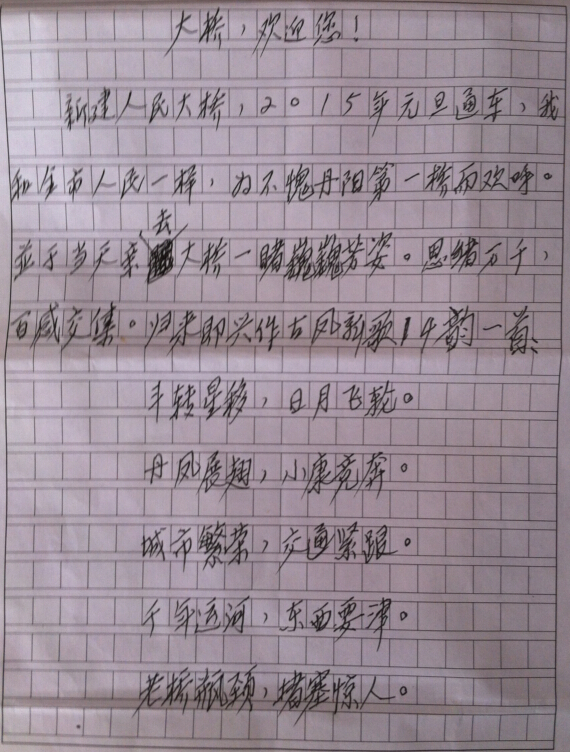 大桥，欢迎您！
新建人民大桥，2015年元旦通车，我
和全市人民一样，为不愧丹阳第一桥而欢呼。
並于当天亲去大桥一睹巍巍芳姿。思绪万千，
百感交集。归来即兴作古风新歌14韵一首：
斗转星移，日月飞轮。
丹凤展翅，小康竞奔。
城市繁荣，交通紧跟。
千年运河，东西要津。
老桥瓶颈，堵塞惊人。